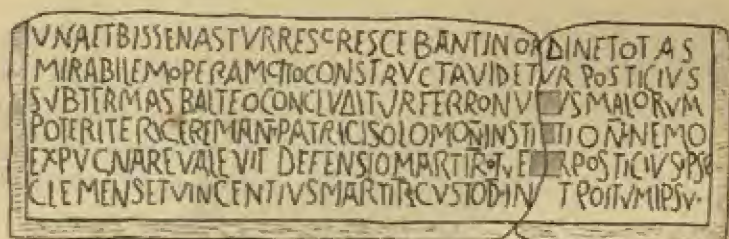 VNAETBISSENASTVRRESCRESCEBANTINORDINETOTAS
MIRABILEMOPERAMCITOCONSTRVCTAVIDETVR POSTICIVS
SVBTERMAS BALTEOCONCLVDITVRFERRONV VSMALORVM
POTERITERICEREMAN·PATRICISOLOMON·INSTI TION·NEMO
EXPVGNAREVALEVIT DEFENSIOMARTIR·TVE RPOSTICIVSIPSE
CLEMENSETVINCENTIVSMARTIR·CVSTODIN T POITVMIPSV·